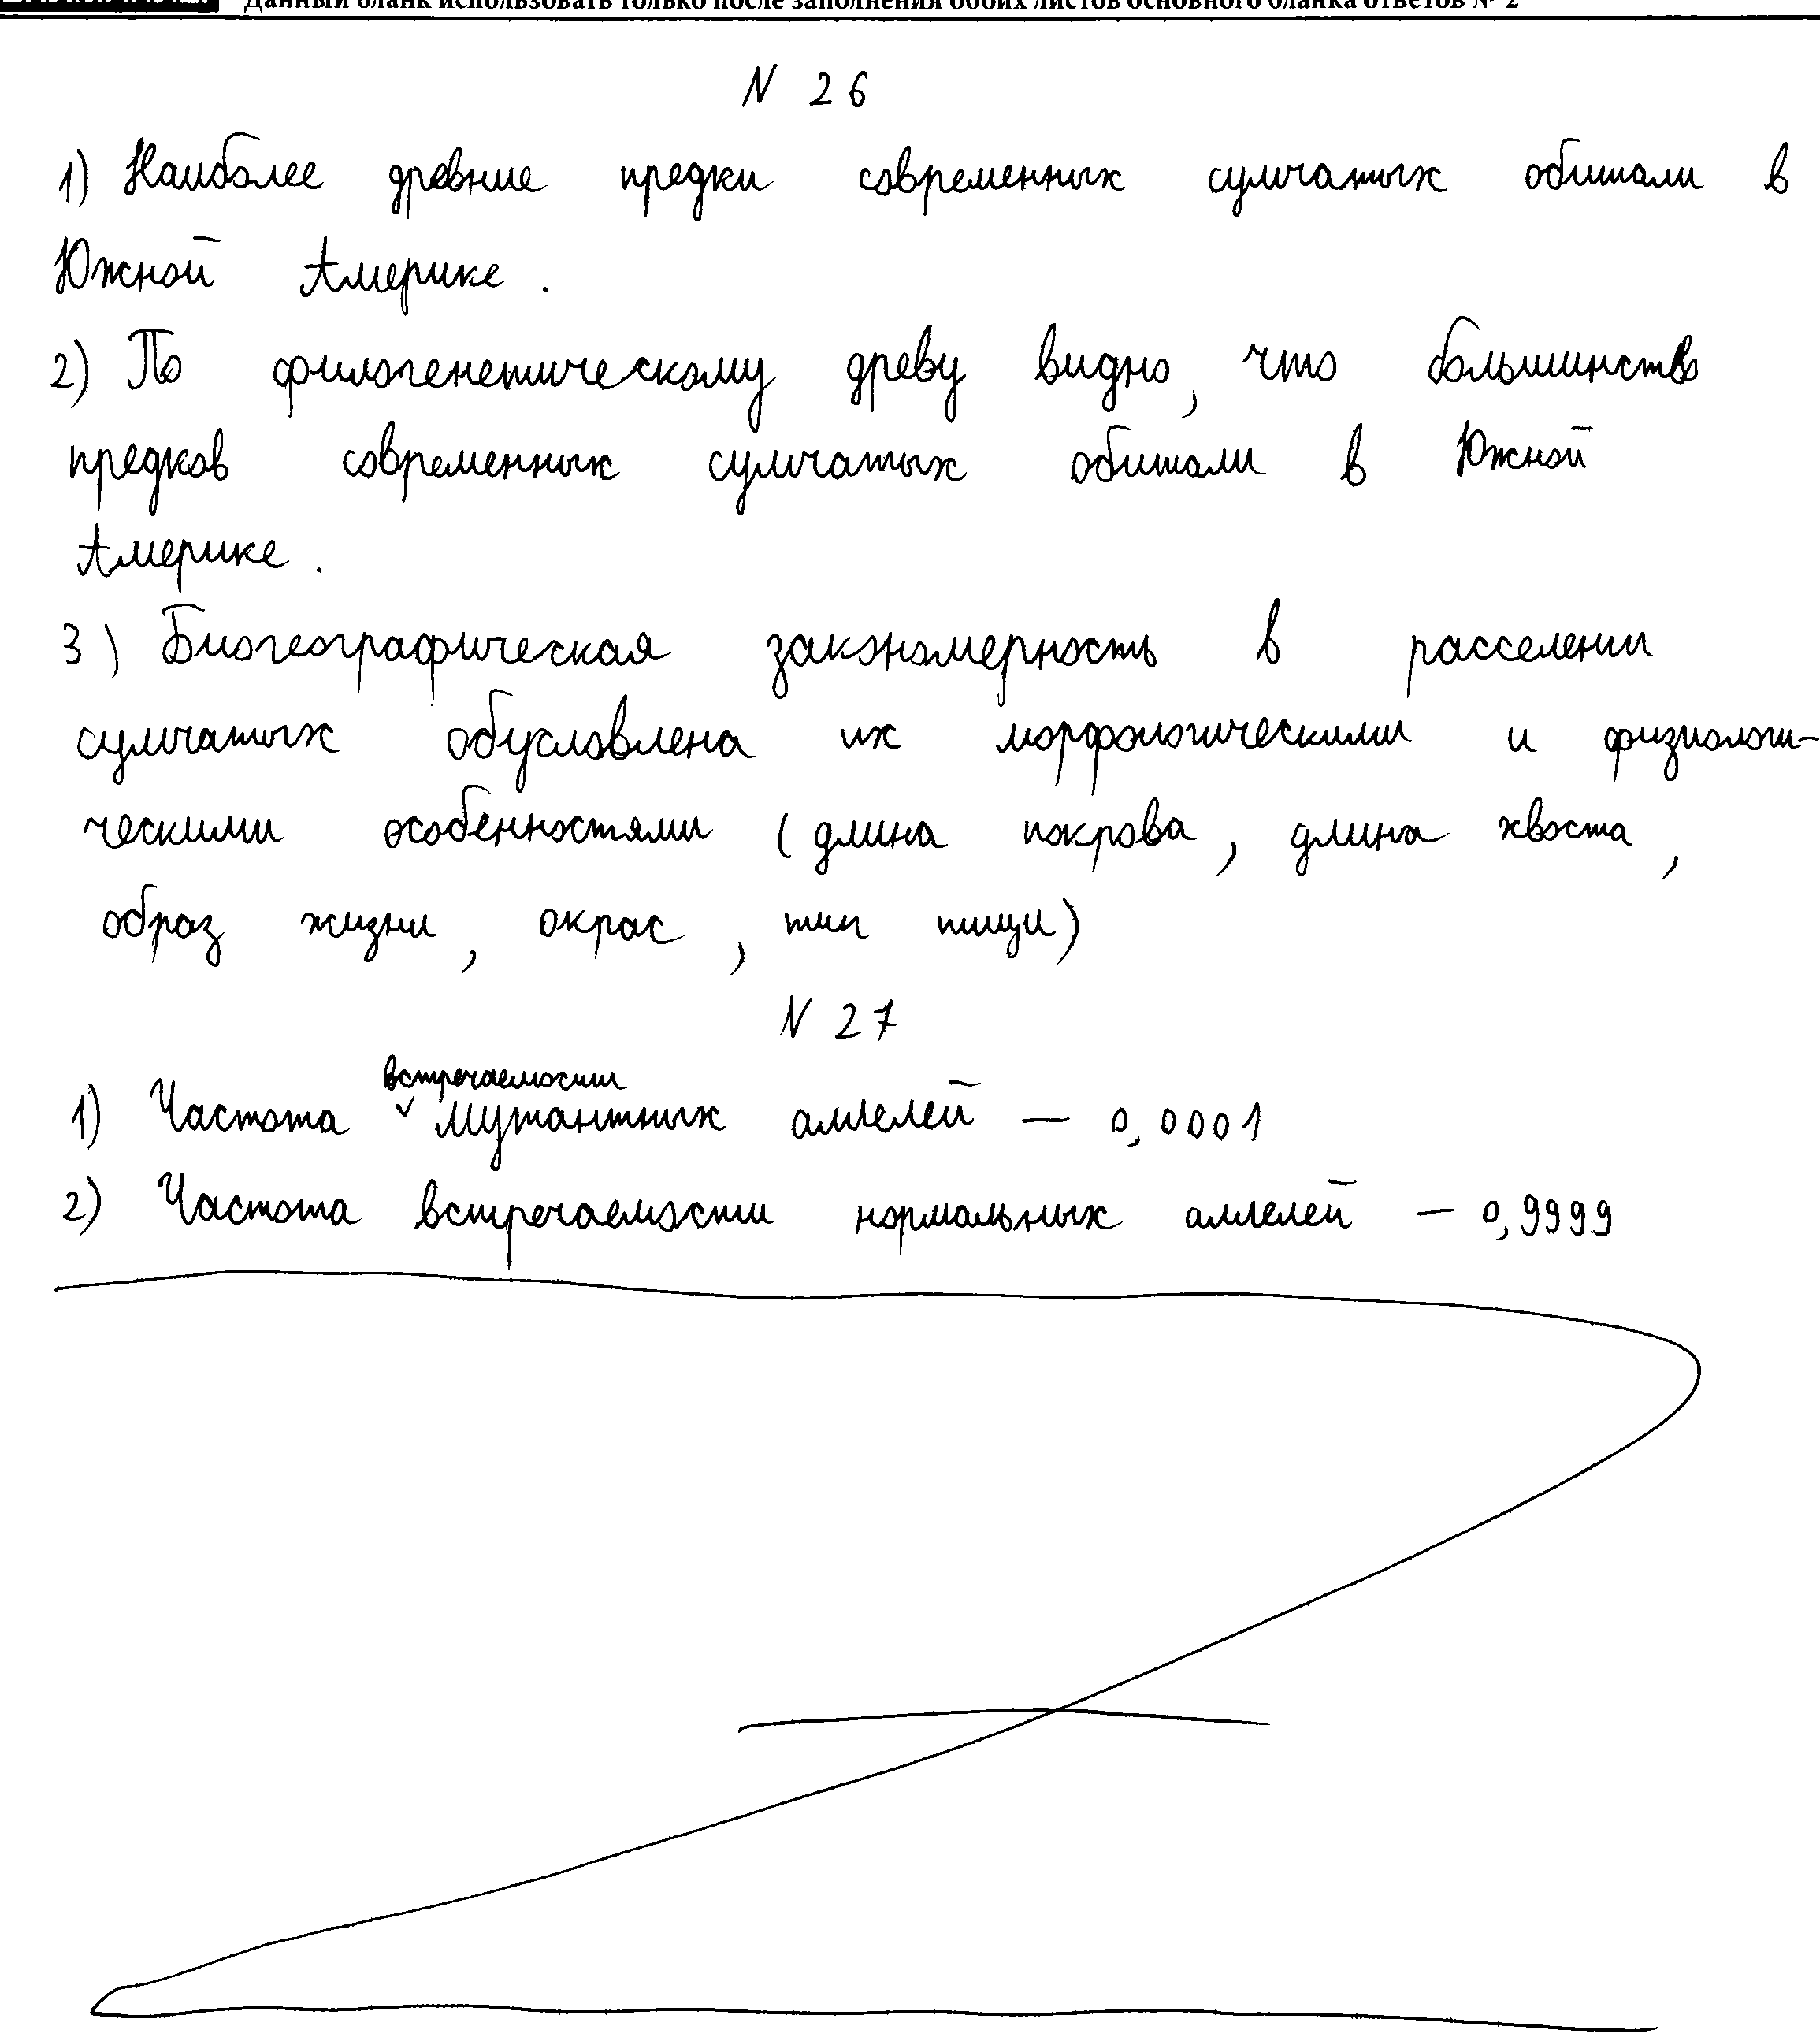 Данный бланк использовать только после заполнения обоих листов основного бланка ответов № 2
N 26
1) Наиболее древние предки современных сумчатых обитали в
Южной Америке.
2) По филогенетическому древу видно, что большинство
предков современных сумчатых обитали в Южной
Америке.
3) Биогеографическая закономерность в расселении
сумчатых обусловлена их морфологическими и физиологи-
ческими особенностями (длина покрова, длина хвоста,
образ жизни, окрас, тип пищи)
N 27
1) Частота встречаемости мутантных аллелей — 0,0001
2) Частота встречаемости нормальных аллелей — 0,9999